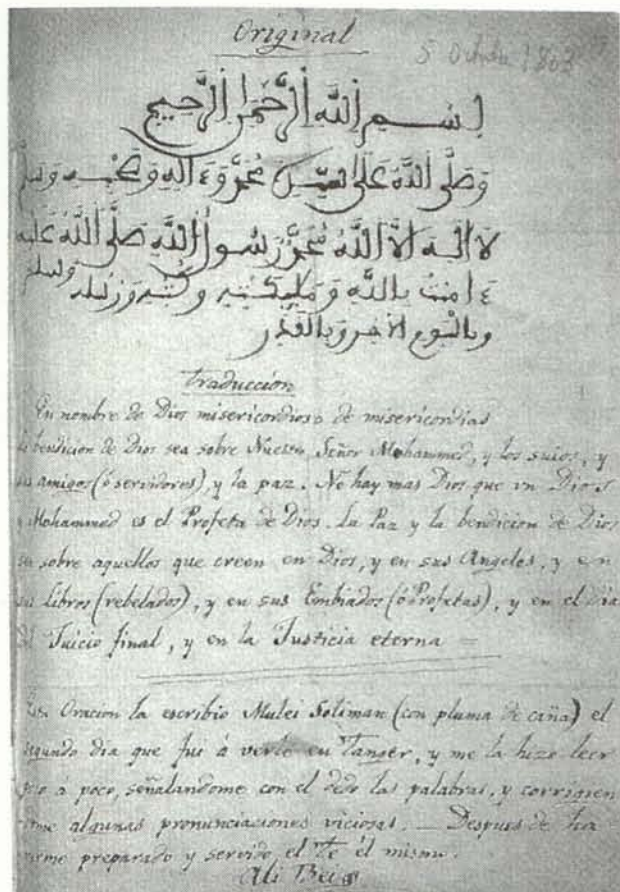 Original
5 Octubre 1803
بِسْمِ اللَّهِ الرَّحْمَنِ الرَّحِيمِ
وَصَلَّى اللَّهُ عَلَى محمد وءاله وصحبه وسلم
لا اله الا الله محمد رسول الله صلى الله عليه
وسلم
ءامنت بالله ومليكته وكتبه ورسله
وباليوم الاخر وبالقدر
Traduccion
En nombre de Dios misericordioso de misericordias
La bendicion de Dios sea sobre Nuestro Señor Mohammed, y los suios, y
sus amigos (ó servidores), y la paz. No hay mas Dios que un Dios
y Mohammed es el Profeta de Dios. La Paz y la bendicion de Dios
sea sobre aquellos que creen en Dios, y en sus Angeles, y en
sus Libros (rebelados), y en sus Embiados (ó Profetas), y en el dia
del Juicio final, y en la Justicia eterna =
Esta Oracion la escribio Mulei Soliman (con pluma de caña) el
segundo dia que fui á verle en Tanger, y me la hizo leer
poco á poco, señalandome con el dedo las palabras, y corrigien
dome algunas pronunciaciones viciosas. — Despues de ha
verme preparado y servido el Te él mismo.
Ali Bei